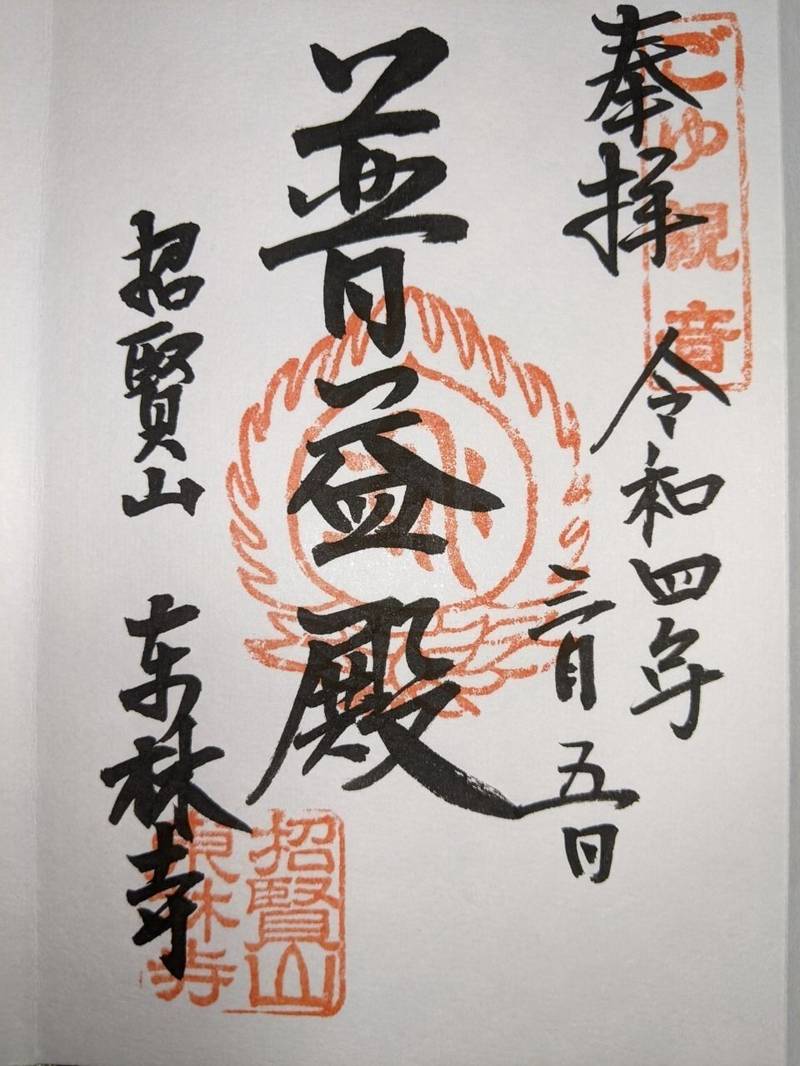 奉拝
ごゆ観音
令和四年
二月五日
普益殿
招賢山
东林寺
招賢山
東林寺